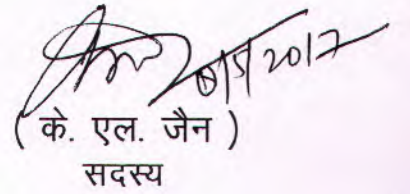 2017
( के. एल. जैन )
सदस्य